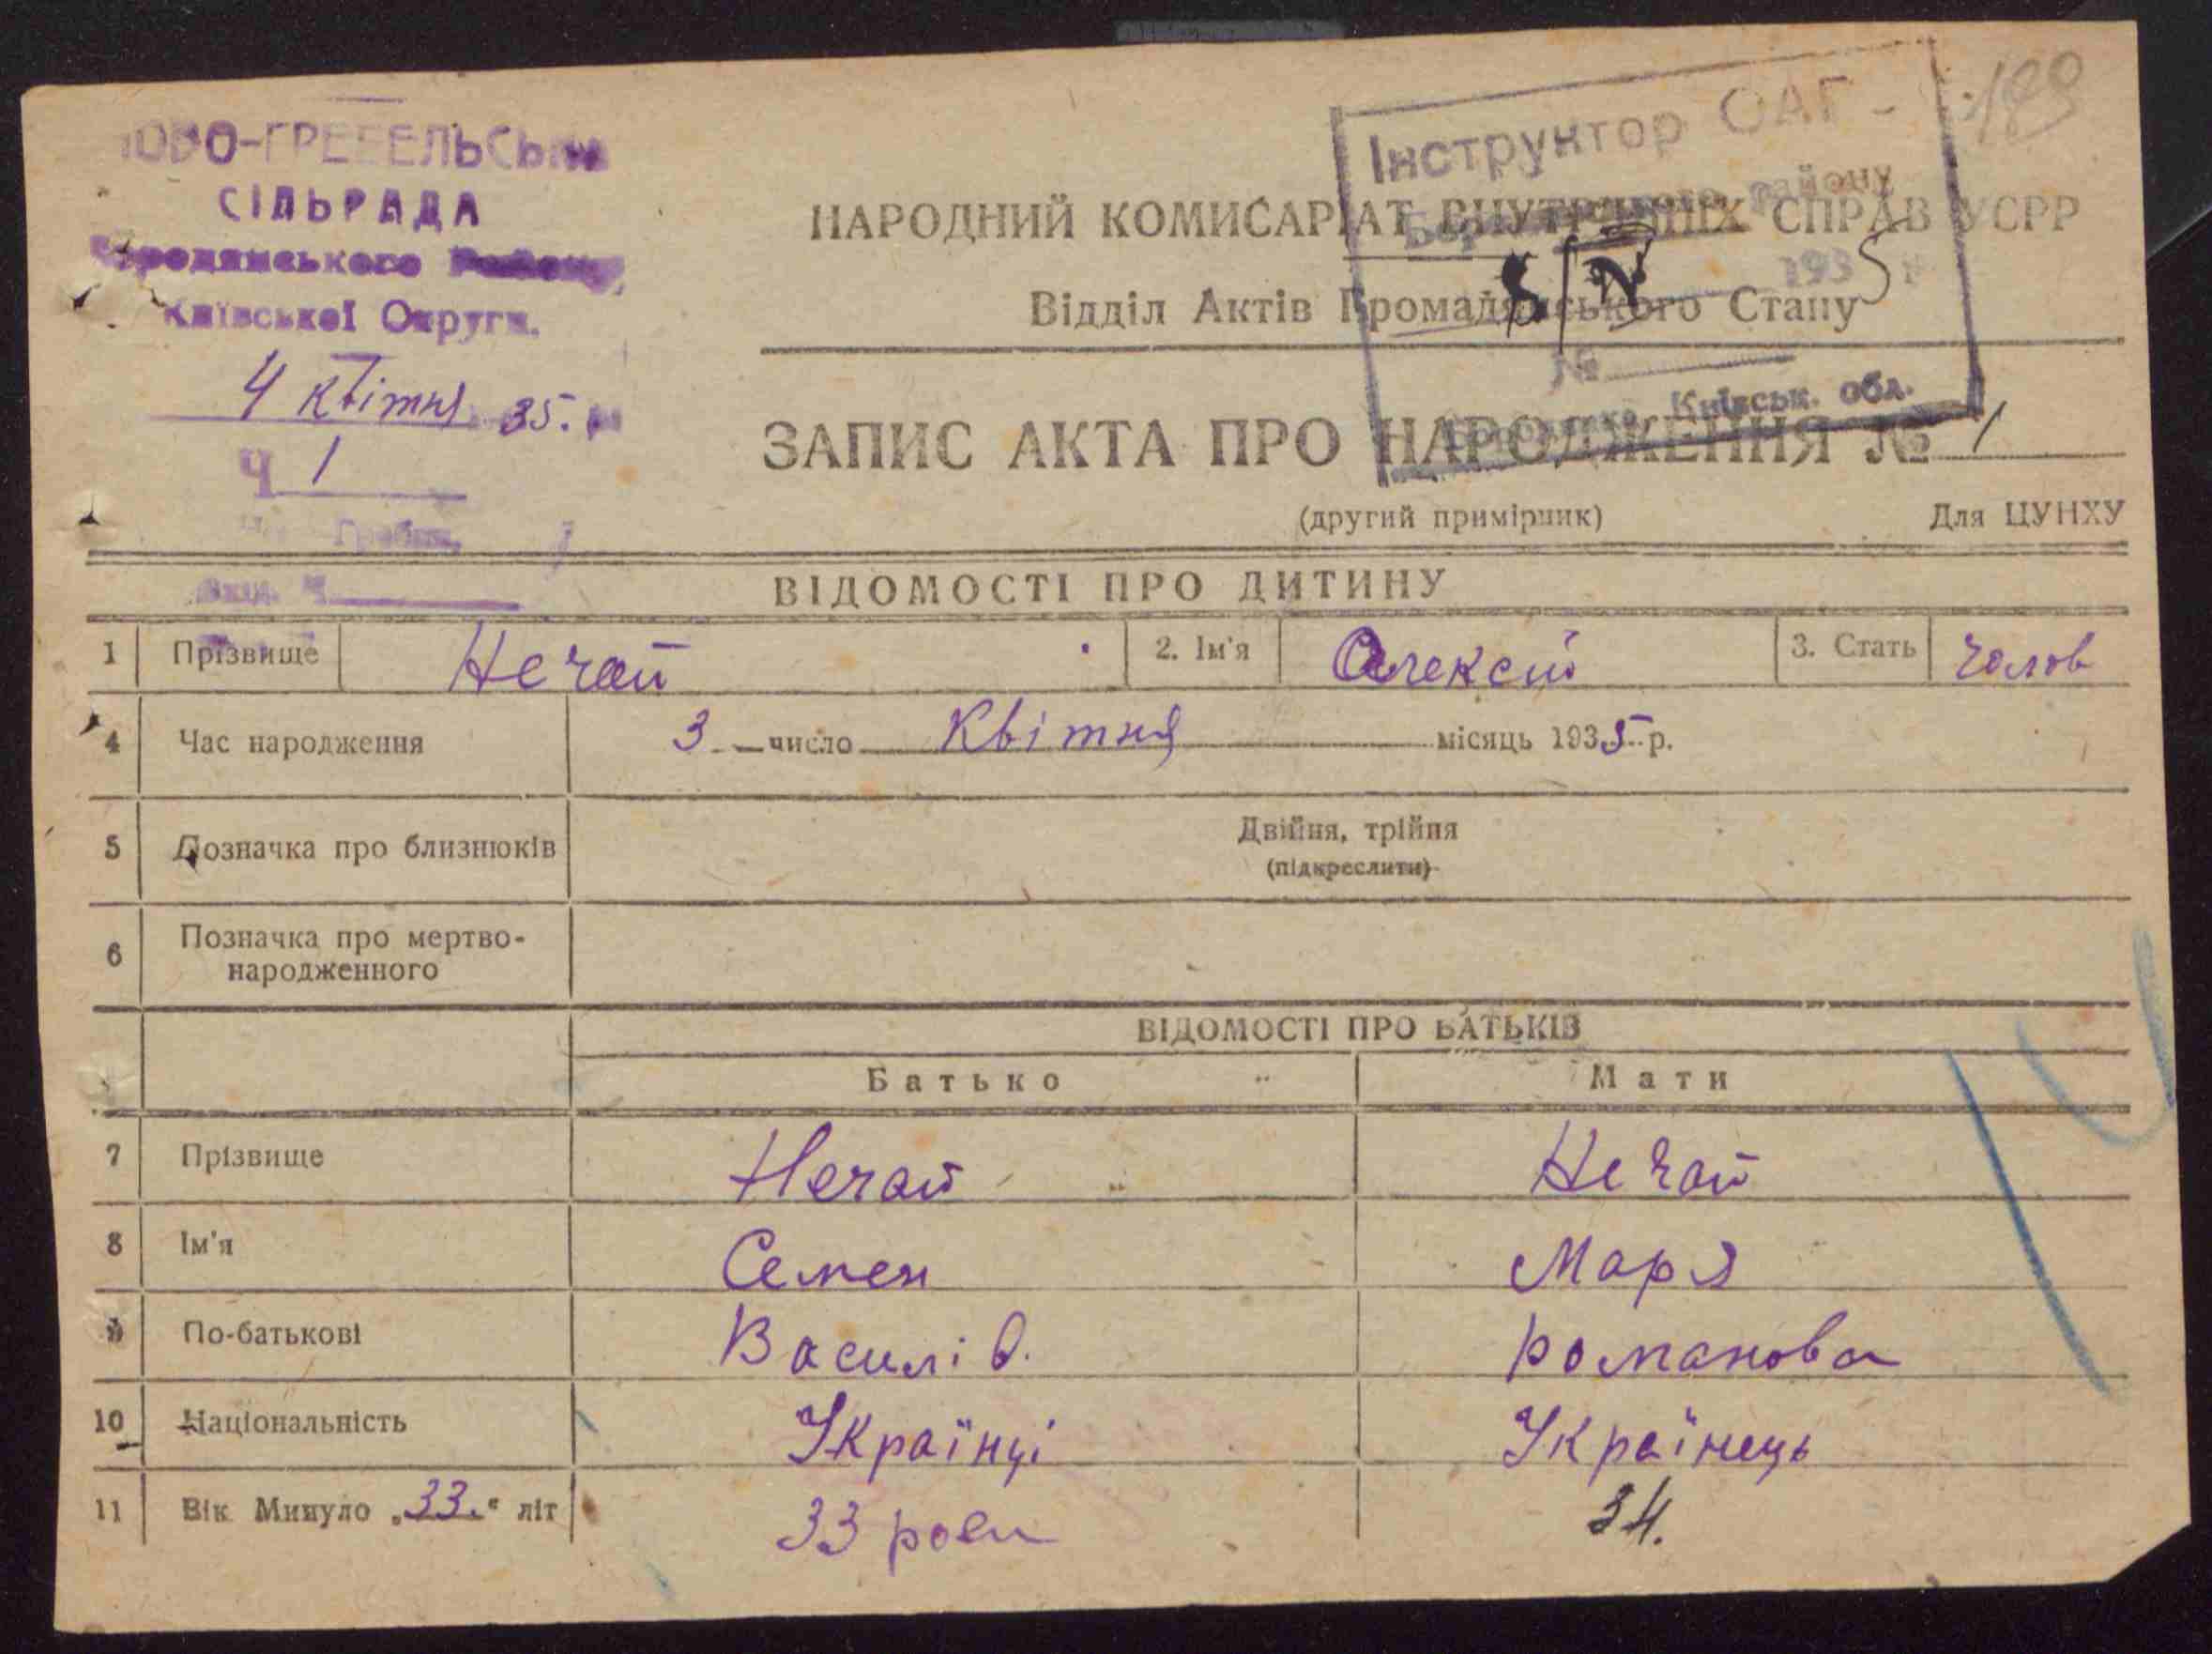 СІЛЬРАДА
Київської Округи.
4 квітня 35.
Ч 1
Інструктор ОАГ
189
району
5/IV 1935
№
Київськ. обл.
НАРОДНИЙ КОМИСАРІАТ ВНУТРІШНІХ СПРАВ УСРР
Відділ Актів Громадянського Стану
ЗАПИС АКТА ПРО НАРОДЖЕННЯ № 1
(другий примірник) Для ЦУНХУ
ВІДОМОСТІ ПРО ДИТИНУ
1 Прізвище Нечай 2. Ім'я Олексій 3. Стать Чолов
4 Час народження 3 число Квітня місяць 1935 р.
5 Позначка про близнюків Двійня, трійня
(підкреслити)
6 Позначка про мертво-
народженного
ВІДОМОСТІ ПРО БАТЬКІВ
Батько Мати
7 Прізвище Нечай Нечай
8 Ім'я Семен Маря
9 По-батькові Василів. Романова
10 Національність Українці Українець
11 Вік Минуло „33.“ літ 33 роки 34.